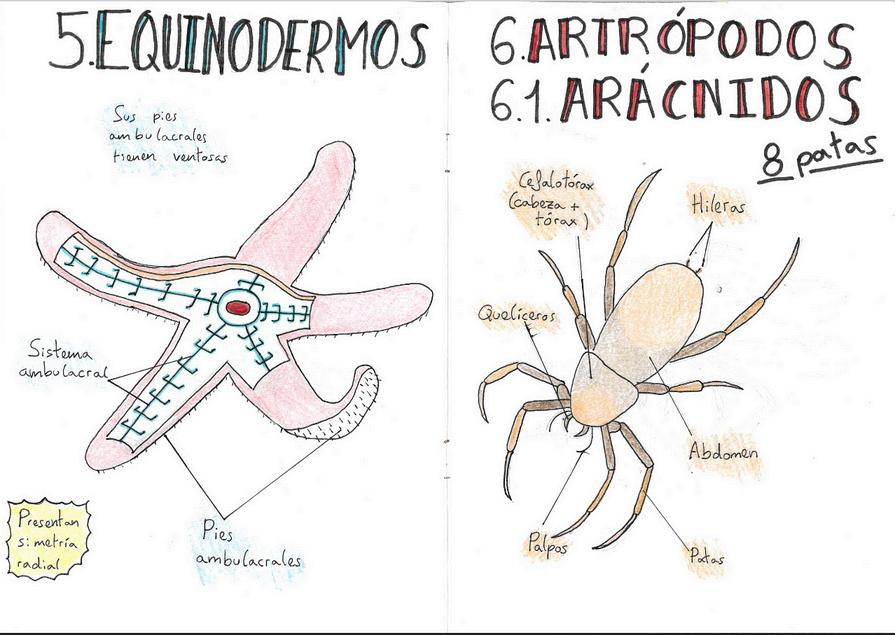 5.EQUINODERMOS
Sus pies
ambulacrales
tienen ventosas
Sistema
ambulacral
Pies
ambulacrales
Presentan
simetría
radial
6.ARTRÓPODOS
6.1.ARÁCNIDOS
8 patas
Cefalotórax
(cabeza +
tórax)
Hileras
Quelíceros
Abdomen
Palpos
Patas